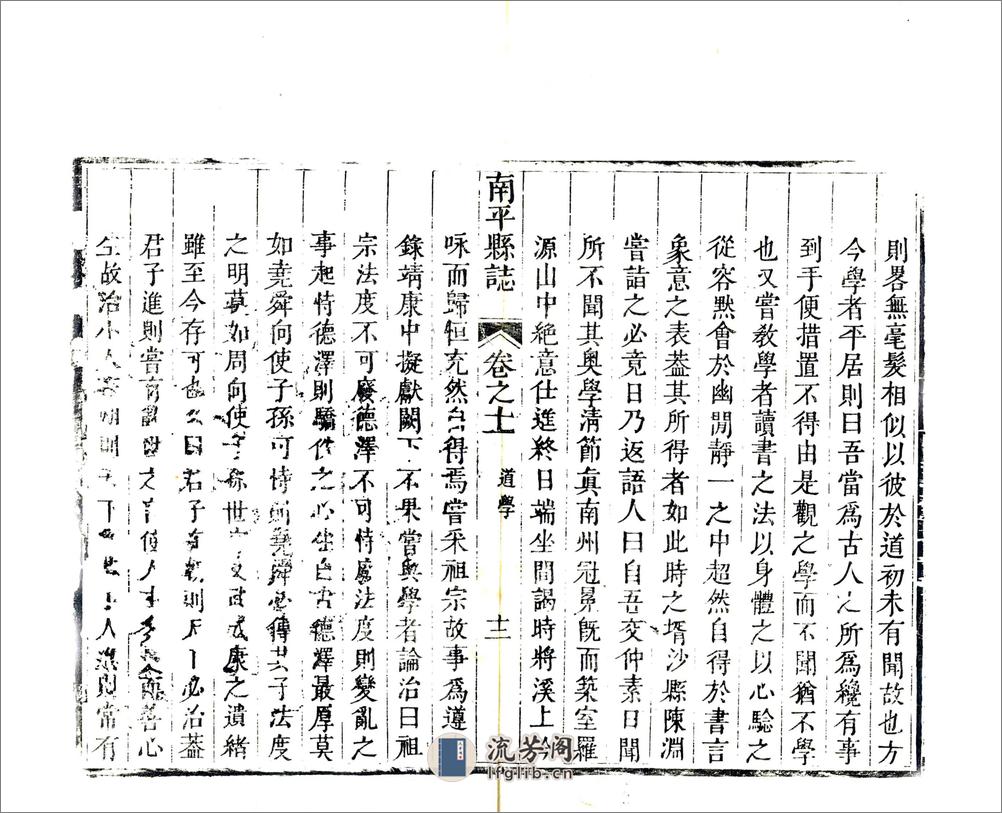 則畧無毫髮相似以彼於道初未有聞故也方
今學者平居則曰吾當爲古人之所爲纔有事
到手便措置不得由是觀之學而不聞猶不學
也又嘗敎學者讀書之法以身體之以心驗之
從容默會於幽閒靜一之中超然自得於書言
象意之表葢其所得者如此時之壻沙縣陳淵
嘗詣之必竟日乃返語人曰自吾交仲素日聞
所不聞其奥學淸節眞南州冠冕旣而築室羅
源山中絶意仕進終日端坐間謁時將溪上吟
南平縣誌
卷之十一
道學
十二
咏而歸恒充然自得焉嘗采祖宗故事爲遵堯
錄靖康中擬獻闕下不果嘗與學者論治曰祖
宗法度不可廢德澤不可恃廢法度則變亂之
事起恃德澤則驕佚之心生自古德澤最厚莫
如堯舜向使子孫可恃則堯舜必傳其子法度
之明莫如周向使子孫世守文武成康之遺緒
雖至今存可也又曰君子在朝則天下必治葢
君子進則常有亂世之言使人主多憂而善心
生故治小人在朝則天下必亂小人進則常有
流芳阁
lfglib.cn